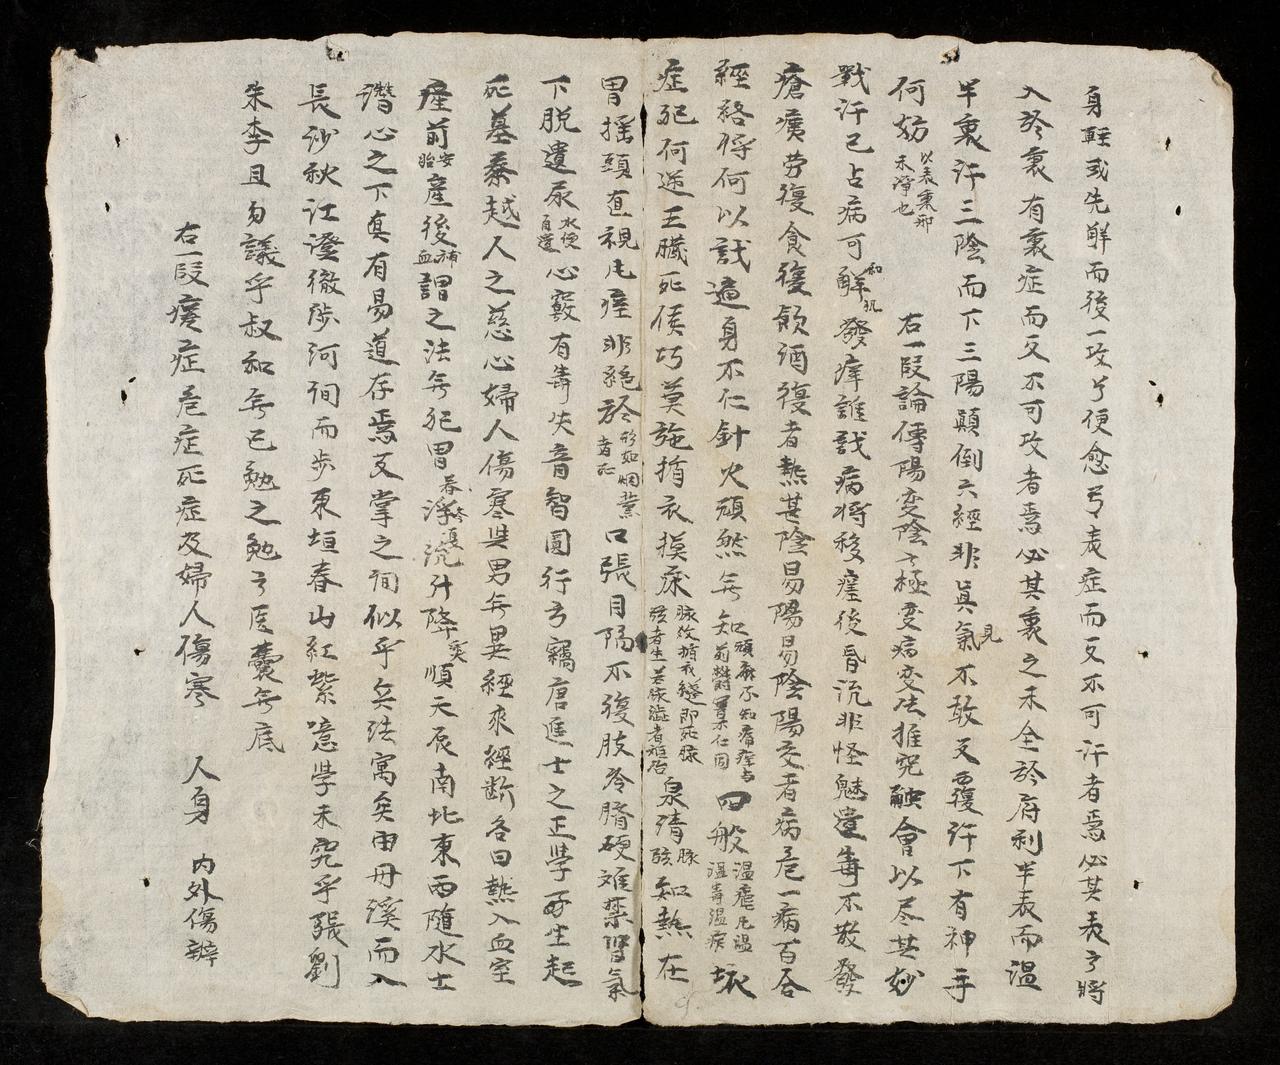 身輕或先解而後一攻兮便愈兮表症而又不可汗者焉必其表之將
入於裏有裏症而又不可攻者焉必其裏之未全於府利半表而溫
半裏汗三陰而下三陽顛倒六經非眞氣見不敢又覆汗下有神手
何妨以表裏邪未淨也 右一段論傳陽變陰之極変病変法推究融會以尽其妙
戰汗已占病可解 發痒誰識病將移 後昏沉非怪魅遺毒不散發
瘡瘍勞復食復飲酒復者熱甚陰易陽易陰陽交者病危一病百合
經絡將何以識遍身不仁針火頑然無知頑麻不知痛痒与 四般溫瘧凡溫溫毒溫疫壞
症犯何逆王臟死侯巧莫施循衣摸床 泉清脉弦知熱在
胃搖頭直視凡痙非絕於形如烟薰者死口張目陷不復肢冷臍硬难禁胃氣
下脫遺尿水便自遺心竅有毒失音智圓行方竊唐進士之正學好生起
死慕秦越人之慈心婦人傷寒與男無異經來經斷各曰熱入血室
產前安胎產後補血謂之法無犯胃 浮沉升降 順天辰南北東西隨水士
潛心之下真有易道存焉反掌之間似乎兵法寓矣由丹溪而入
長沙秋江澄徹陟河間而步東垣春山紅紫噫學未究乎張劉
朱李且勿議乎叔和無已勉之勉之医囊無底
右一段 症危症死症及婦人傷寒 人身 內外傷辨